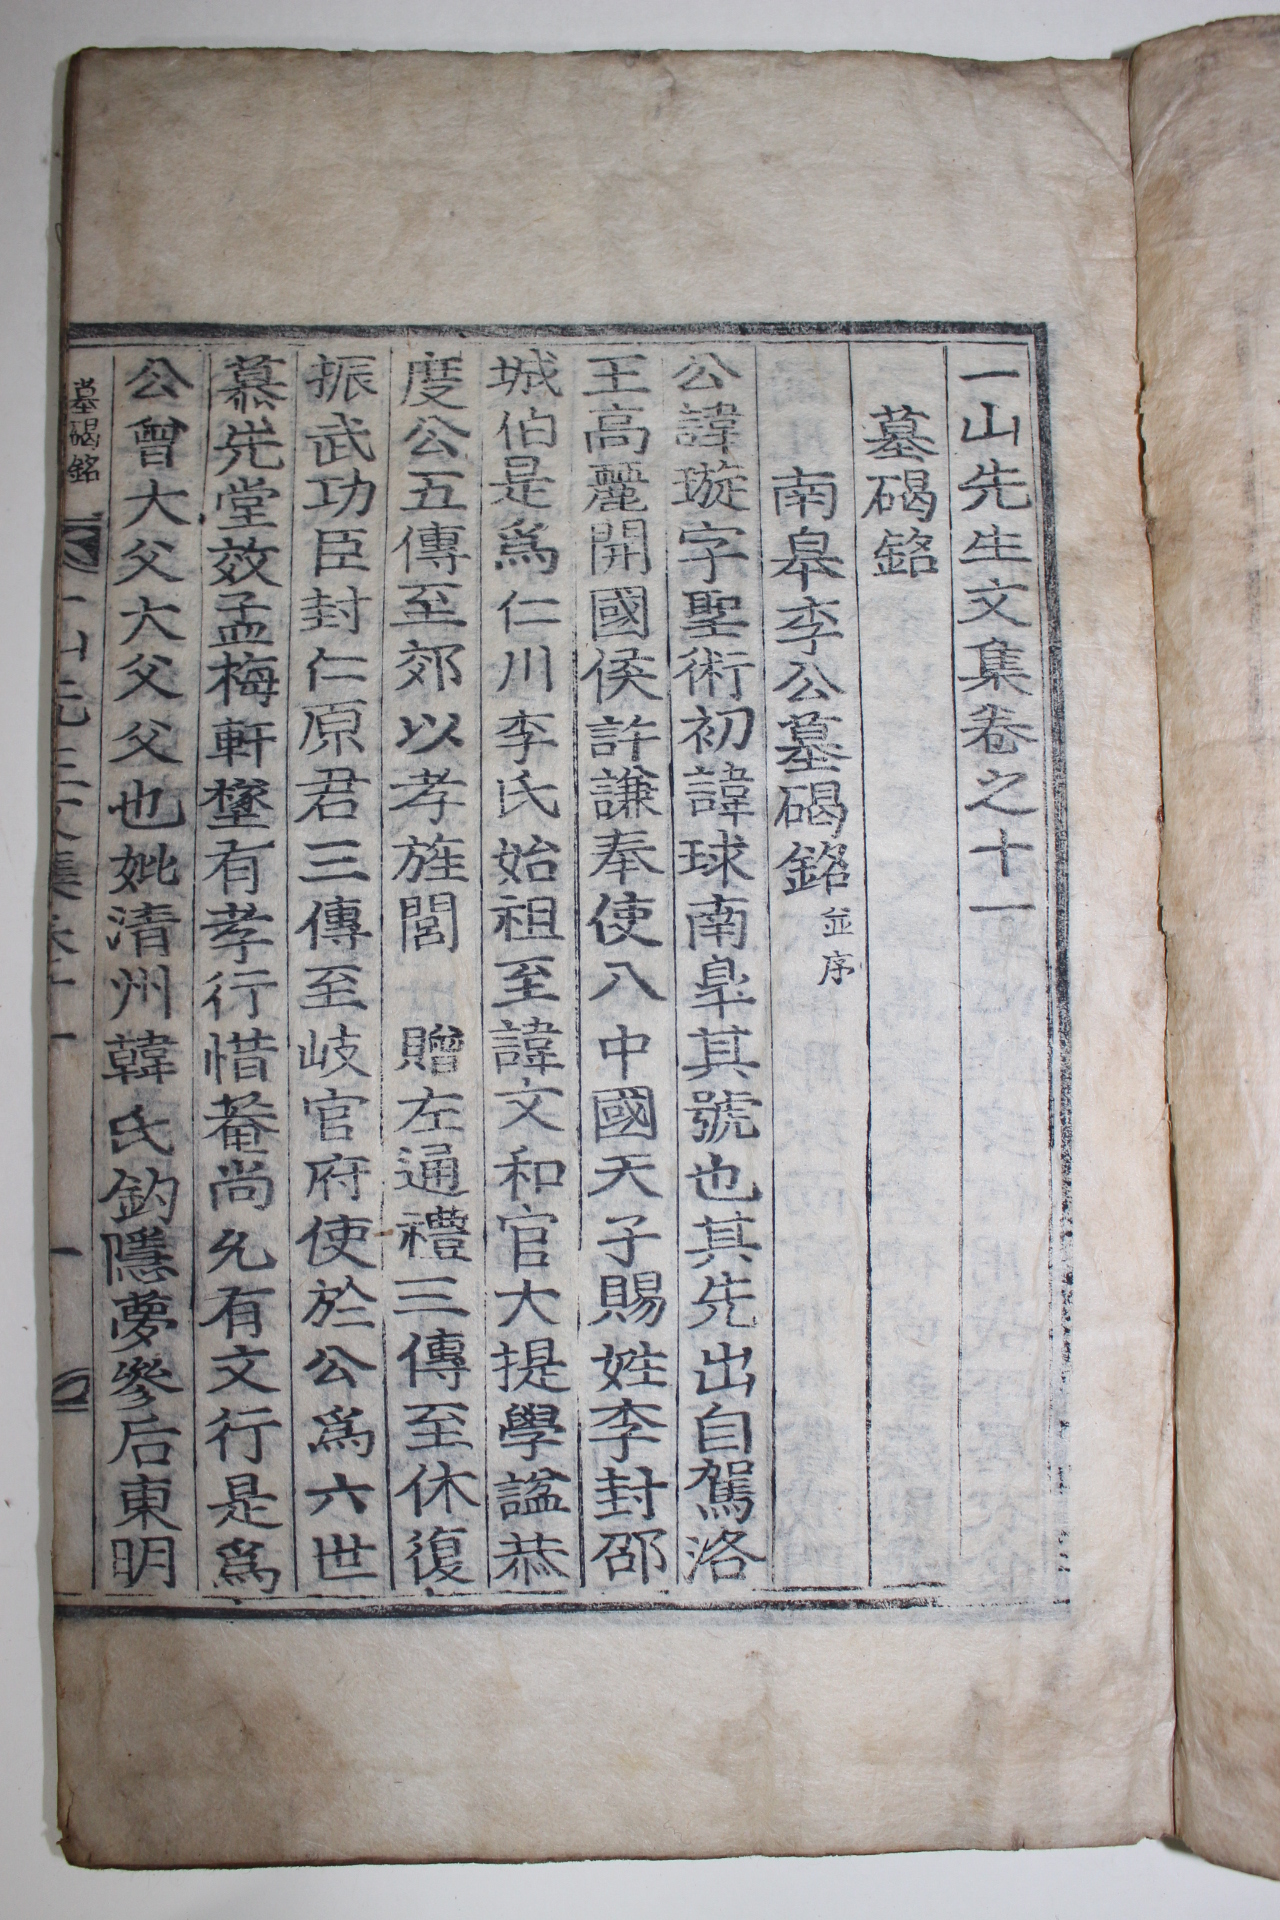 一山先生文集卷之十一
墓碣銘
南皐李公墓碣銘並序
公諱璇字聖術初諱球南皐其號也其先出自駕洛
王高麗開國侯許謙奉使入中國天子賜姓李封邵
城伯是爲仁川李氏始祖至諱文和官大提學諡恭
度公五傳至郊以孝旌閭 贈左通禮三傳至休復
振武功臣封仁原君三傳至岐官府使於公爲六世
慕先堂效孟梅軒墜有孝行惜菴尚允有文行是爲
公曾大父大父父也妣清州韓氏釣隱夢參后東明
墓碣銘
一山先生文集卷十一
一